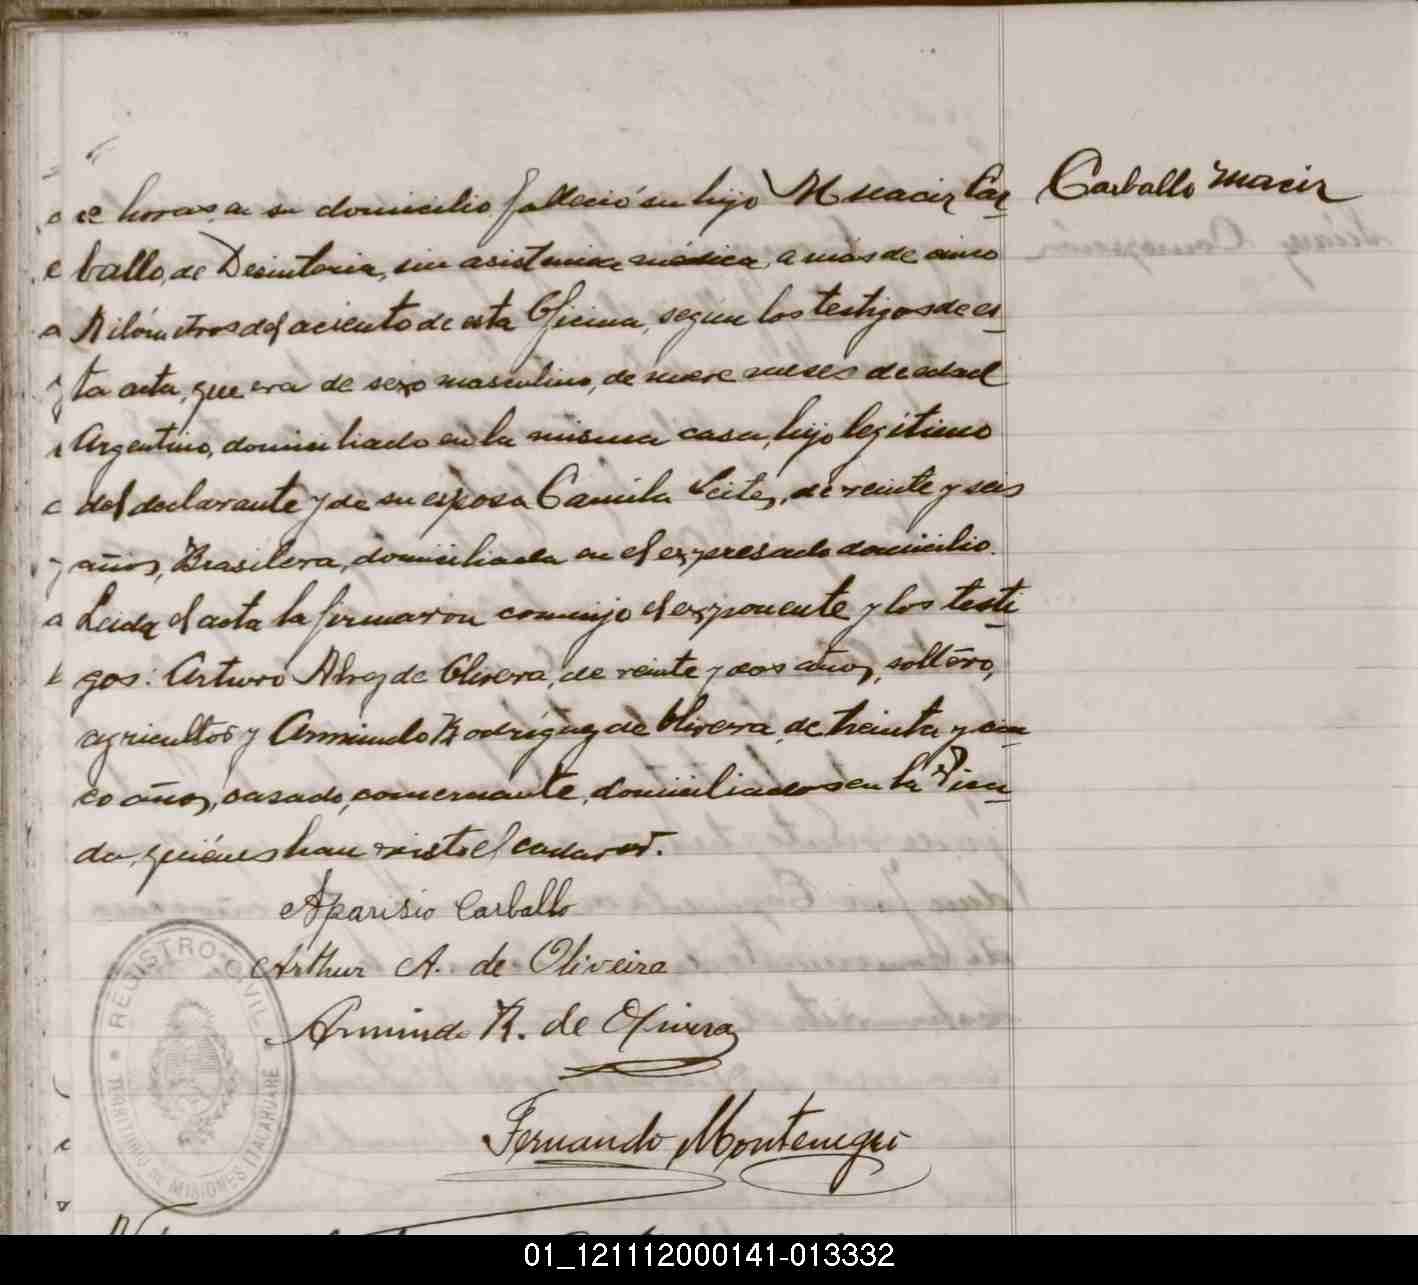 ce horas, en su domicilio falleció su hijo Muacir Car-
ballo, de Desinteria, sin asistencia médica, a mas de cinco
Kilómetros del aciento de esta Oficina, según los testigos de es-
ta acta, que era de sexo masculino, de nueve meses de edad
Argentino, domiciliado en la misma casa, hijo legitimo
del declarante y de su esposa Camila Leite, de veinte y seis
años, Brasilera, domiciliada en el expresado domicilio.
Leida el acta la firmaron conmigo el exponente y los testi-
gos: Arturo Alvez de Olivera, de veinte y dos años, soltero,
agricultor y Armindo Rodríguez de Olivera, de treinta y cin-
co años, casado, comerciante, domiciliados en la Pica-
da, quiénes han visto el cadaver.
Carballo Macir
Aparisio Carballo
Arthur A. de Oliveira
Armindo R. de Olivera
Fernando Montenegro
REGISTRO CIVIL
TERRITORIO DE MISIONES ITACARUARE
01_121112000141-013332